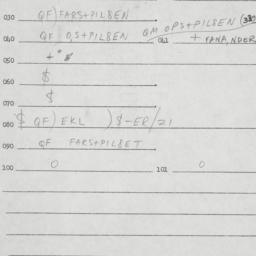 030 QF) FARS+PILSEN
040 QF O,S+PILSEN QM OPS+PILSEN
041 + FANA,NDER
050 + * $
060 $
070 $
080 $ QF) EKL ) $-ER/21
090 QF FARS+PILSET
100 0 101 0